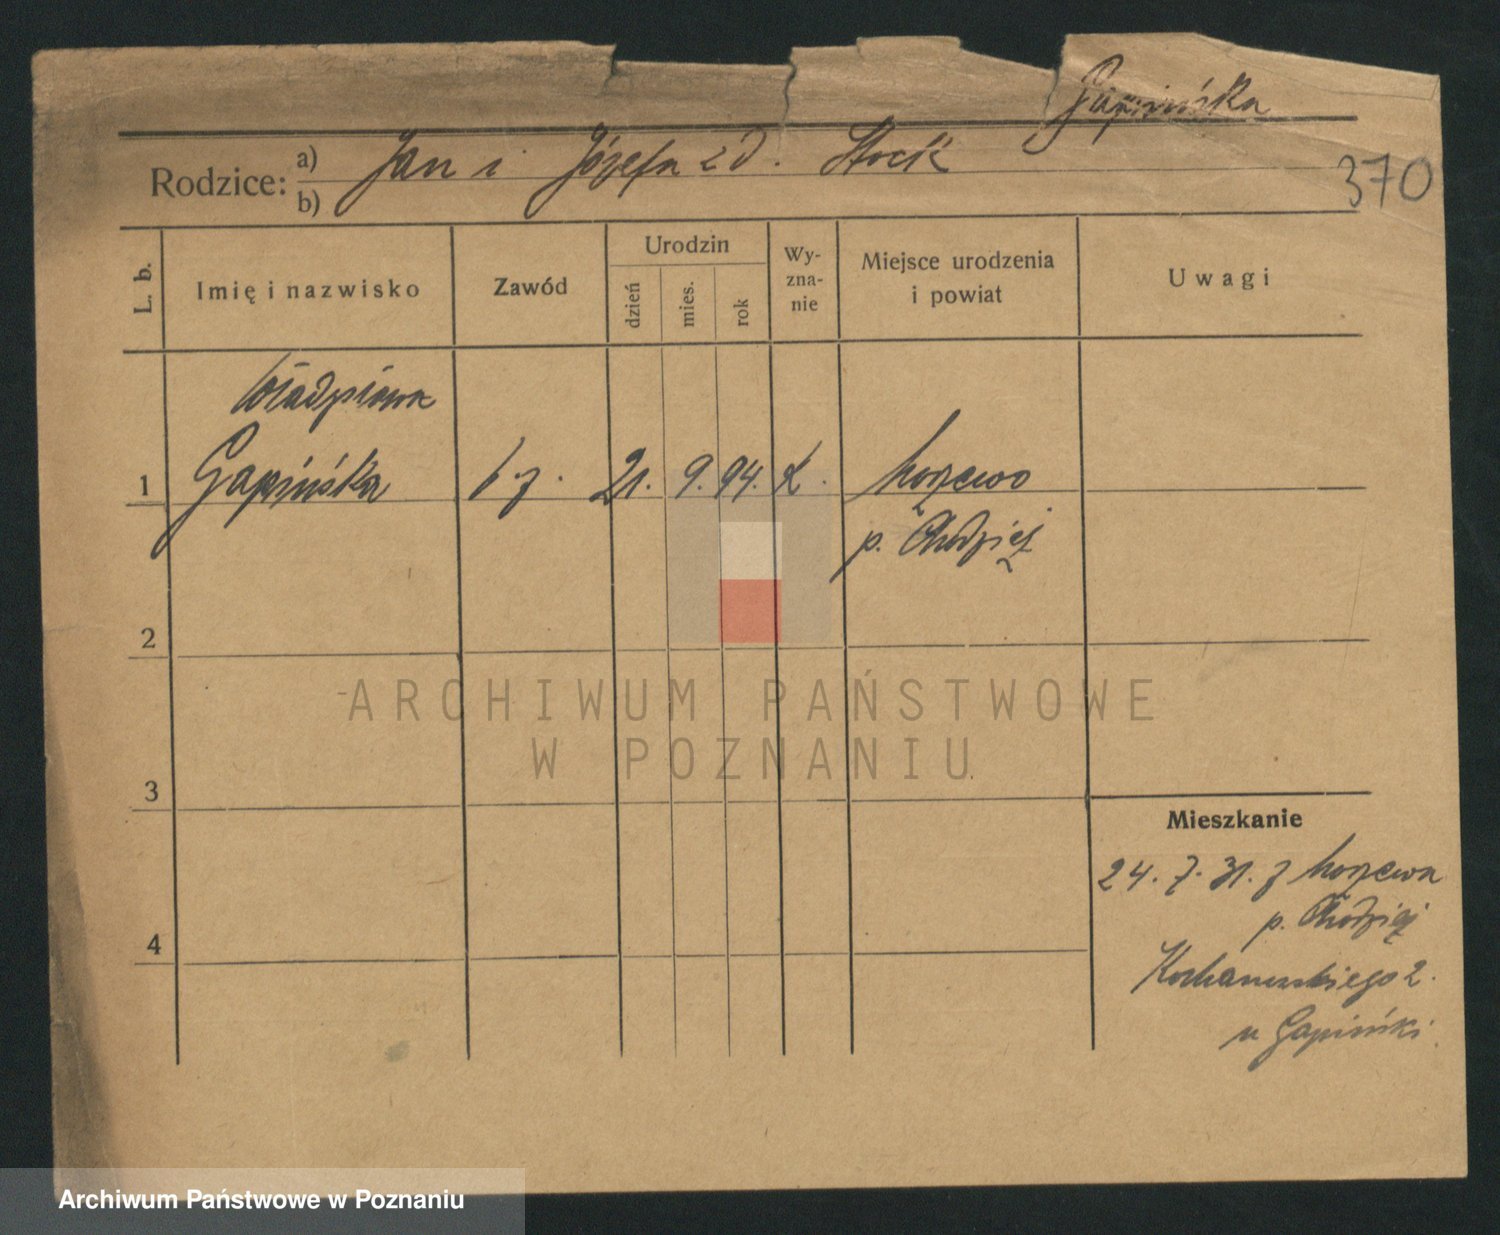 Gapińska
370
Rodzice: a) Jan i Józefa z d. Stock
b)
L. b.
Imię i nazwisko
Zawód
Urodzin
dzień
mies.
rok
Wy-
zna-
nie
Miejsce urodzenia
i powiat
Uwagi
Władysława
1 Gapińska b z. 21. 9. 94. k.
p. Chodzież
2
ARCHIWUM PAŃSTWOWE
W POZNANIU
3
Mieszkanie
24. 7. 31. z
p. Chodzież
4
Kochanowskiego 2.
u Gapiński
Archiwum Państwowe w Poznaniu